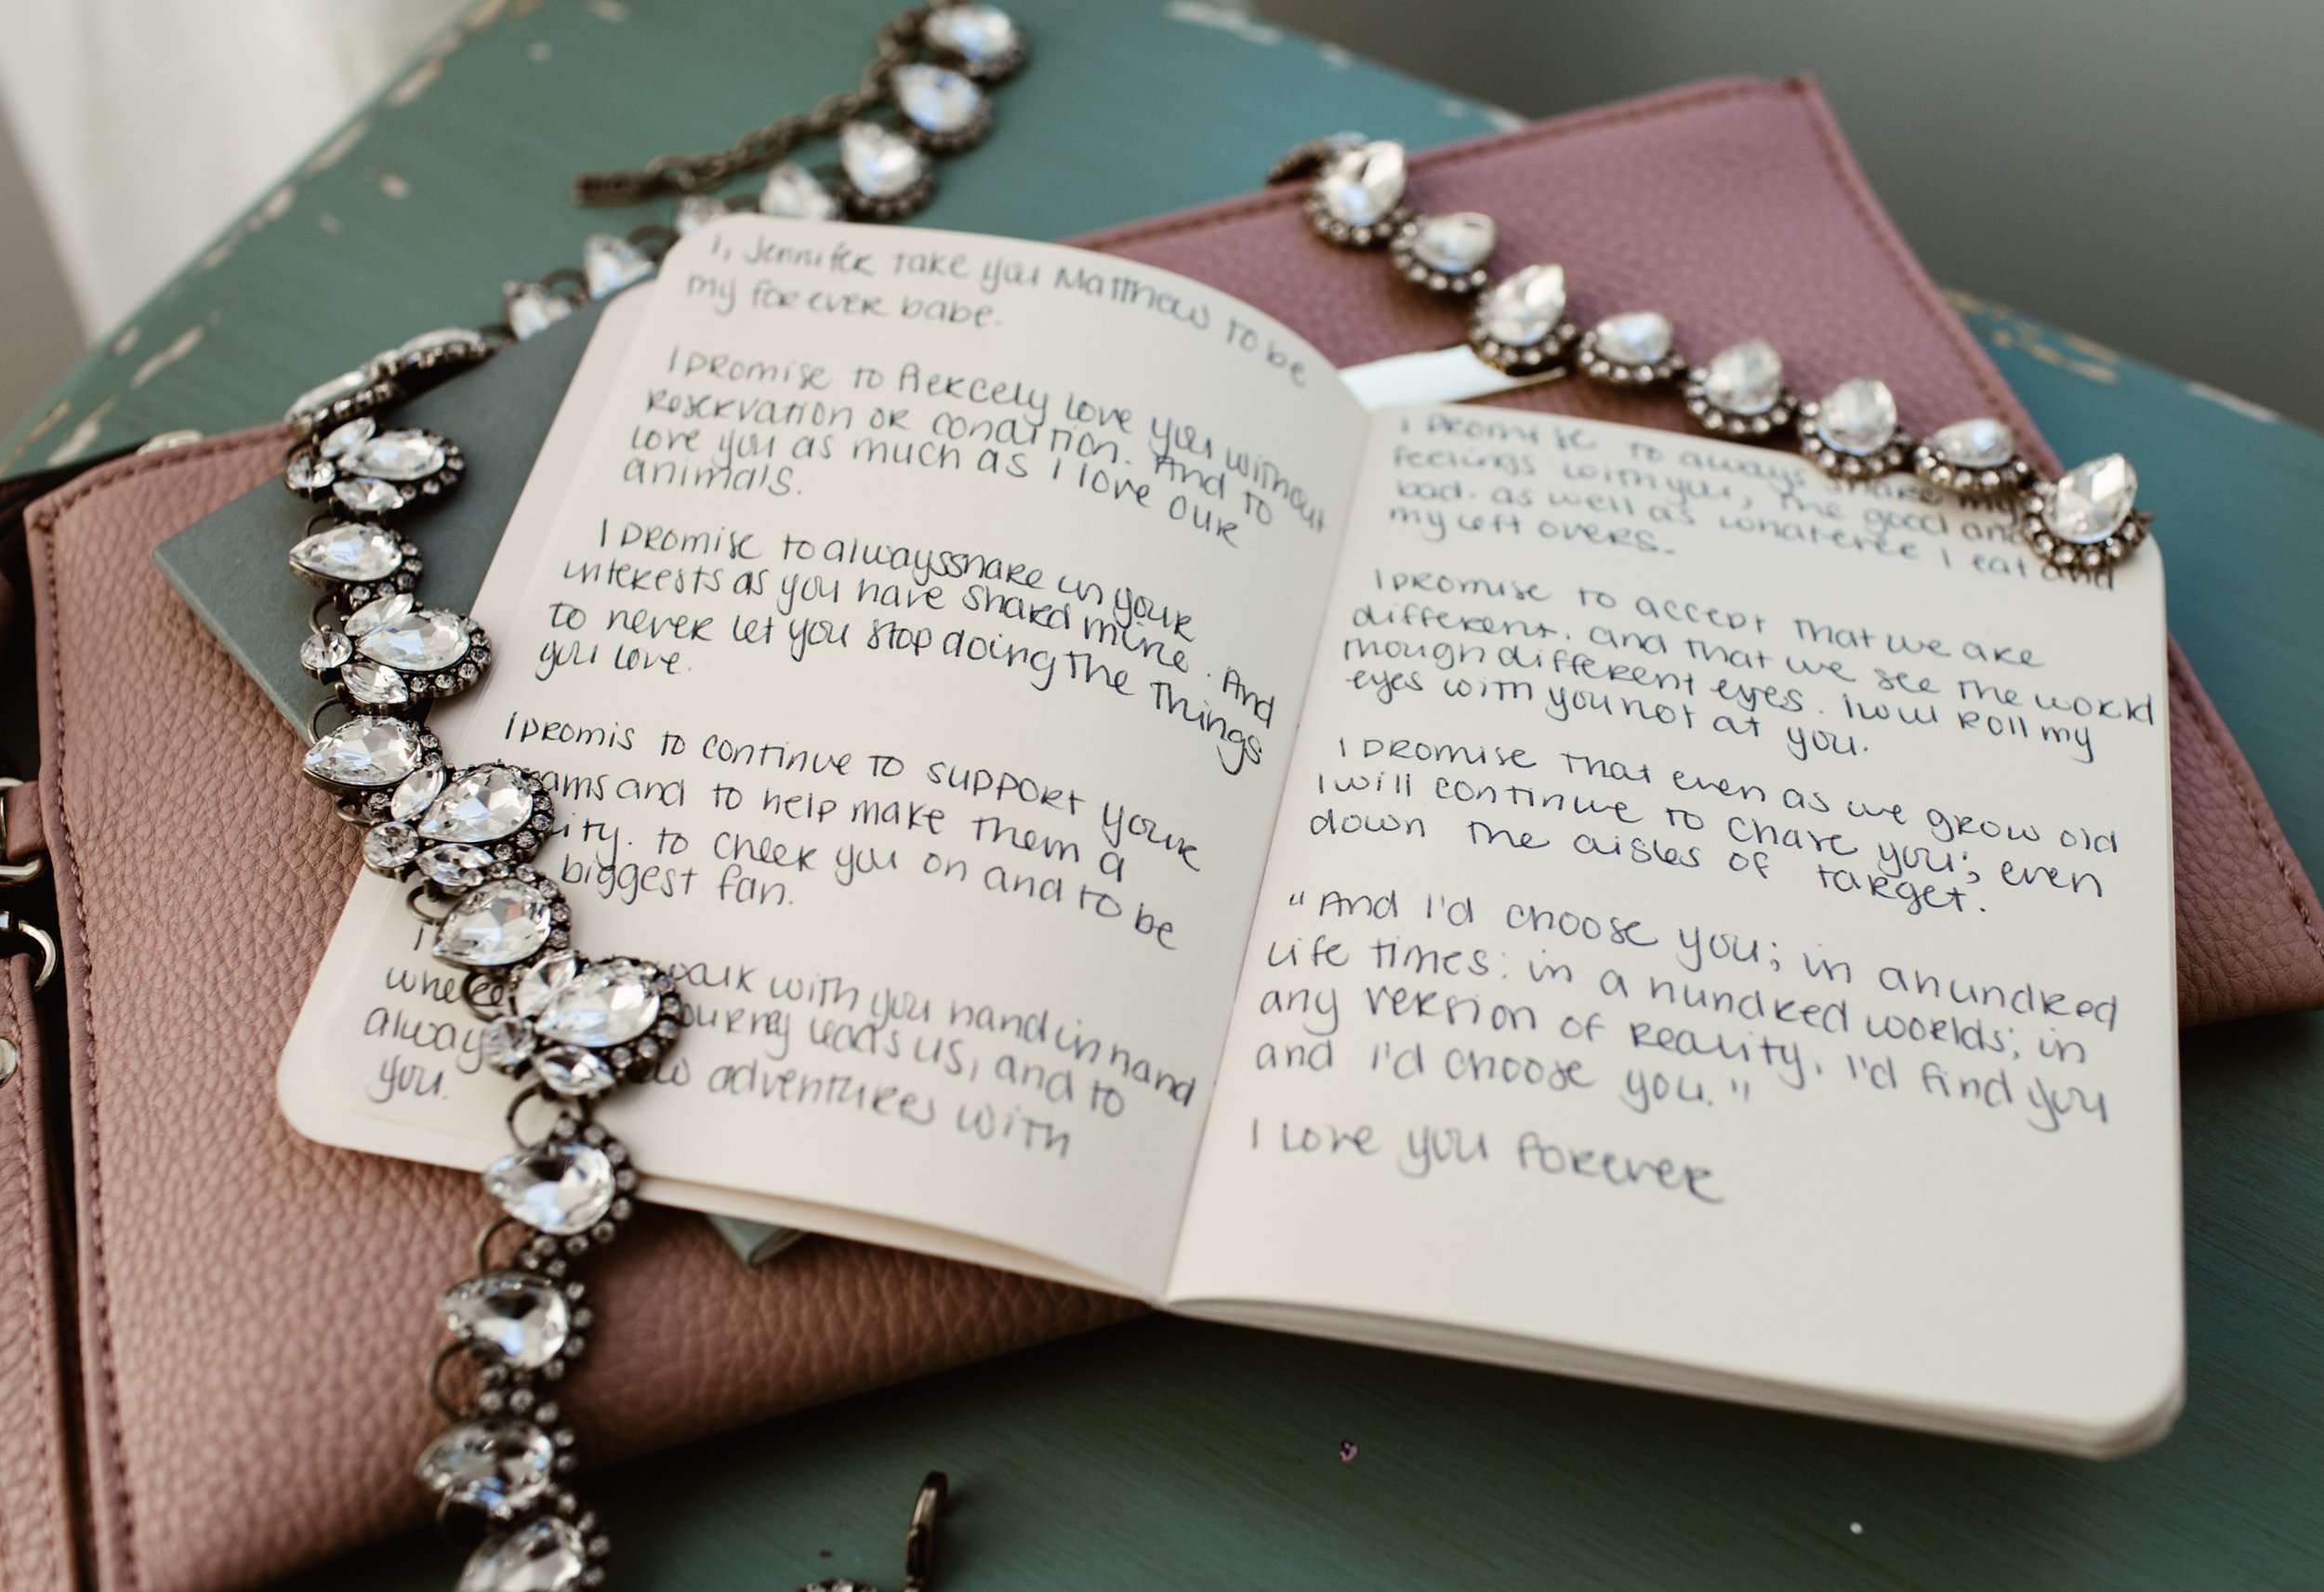 I, Jennifer take you Matthew to be
my forever babe.
I promise to fiercely love you without
reservation or condition. And to
love you as much as I love our
animals.
I promise to always share in your
interests as you have shared mine. And
to never let you stop doing the things
you love.
I promis to continue to support your
ams and to help make them a
ity. to cheer you on and to be
biggest fan.
I walk with you hand in hand
where ourney leads us, and to
alway adventures with
you.
I promise to always share my
feelings with you, the good and
bad. as well as whatever I eat and
my left overs.
I promise to accept that we are
different. and that we see the world
though different eyes. I will roll my
eyes with you not at you.
I promise that even as we grow old
I will continue to chave you; even
down the aisles of target.
"And I'd choose you; in a hundred
life times: in a hundred worlds; in
any version of reality, I'd find you
and I'd choose you."
I love you forever